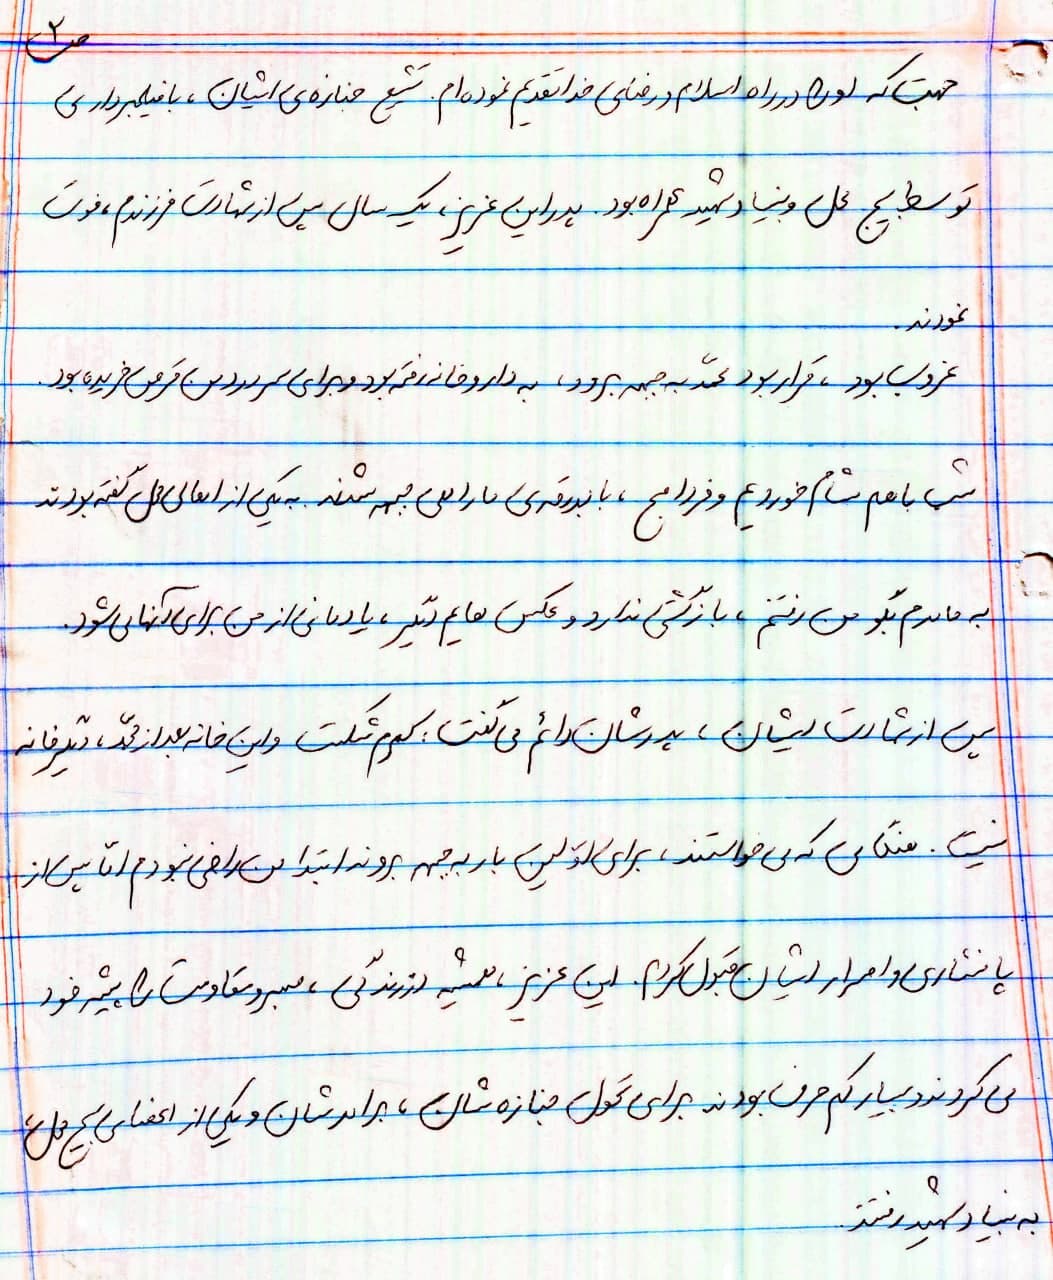 ص ۲
جهت که او را در راه اسلام و رضای خدا تقدیم نموده‌ام. تشییع جنازه‌ی ایشان، با فیلمبرداری
توسط بسیج محل و بنیاد شهید همراه بود. پدر این عزیز، یک سال پس از شهادت فرزندم، فوت
نمودند.
غروب بود، قرار بود محمّد به جبهه برود، به داروخانه رفته بود و برای سردرد من قرص خریده بود.
شب با هم شام خوردیم و فردا صبح، با بدرقه‌ی ما راهی جبهه شدند. به یکی از اهالی محل گفته بودند
به مادرم بگو من رفتنم، بازگشتی ندارد و عکس هایم دیگر، یادمانی از من برای آنها می شود.
پس از شهادت ایشان، پدرشان دائم می گفت: کمرم شکست و این خانه بعد از محمّد، دیگر خانه
نیست. هنگامی که می خواستند، برای اوّلین بار به جبهه بروند ابتدا من راضی نبودم امّا پس از
پافشاری و اصرار ایشان قبول کردم. این عزیز، همیشه در زندگی، صبر و مقاومت را پیشه خود
می کردند و بسیار کم حرف بودند برای تحویل جنازه شان، برادرشان و یکی از اعضای بسیج محل،
به بنیاد شهید رفتند.